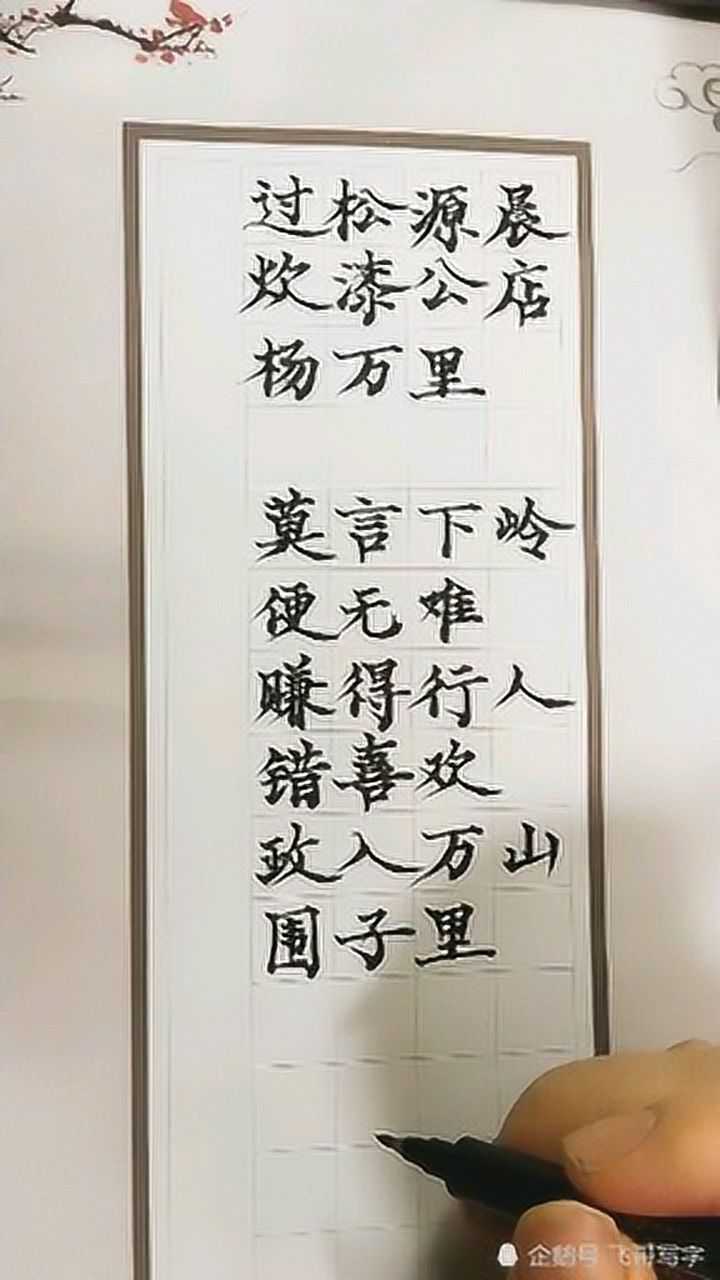 过松源晨
炊漆公店
杨万里
莫言下岭
便无难
赚得行人
错喜欢
政入万山
围子里
企鹅号 飞帝写字